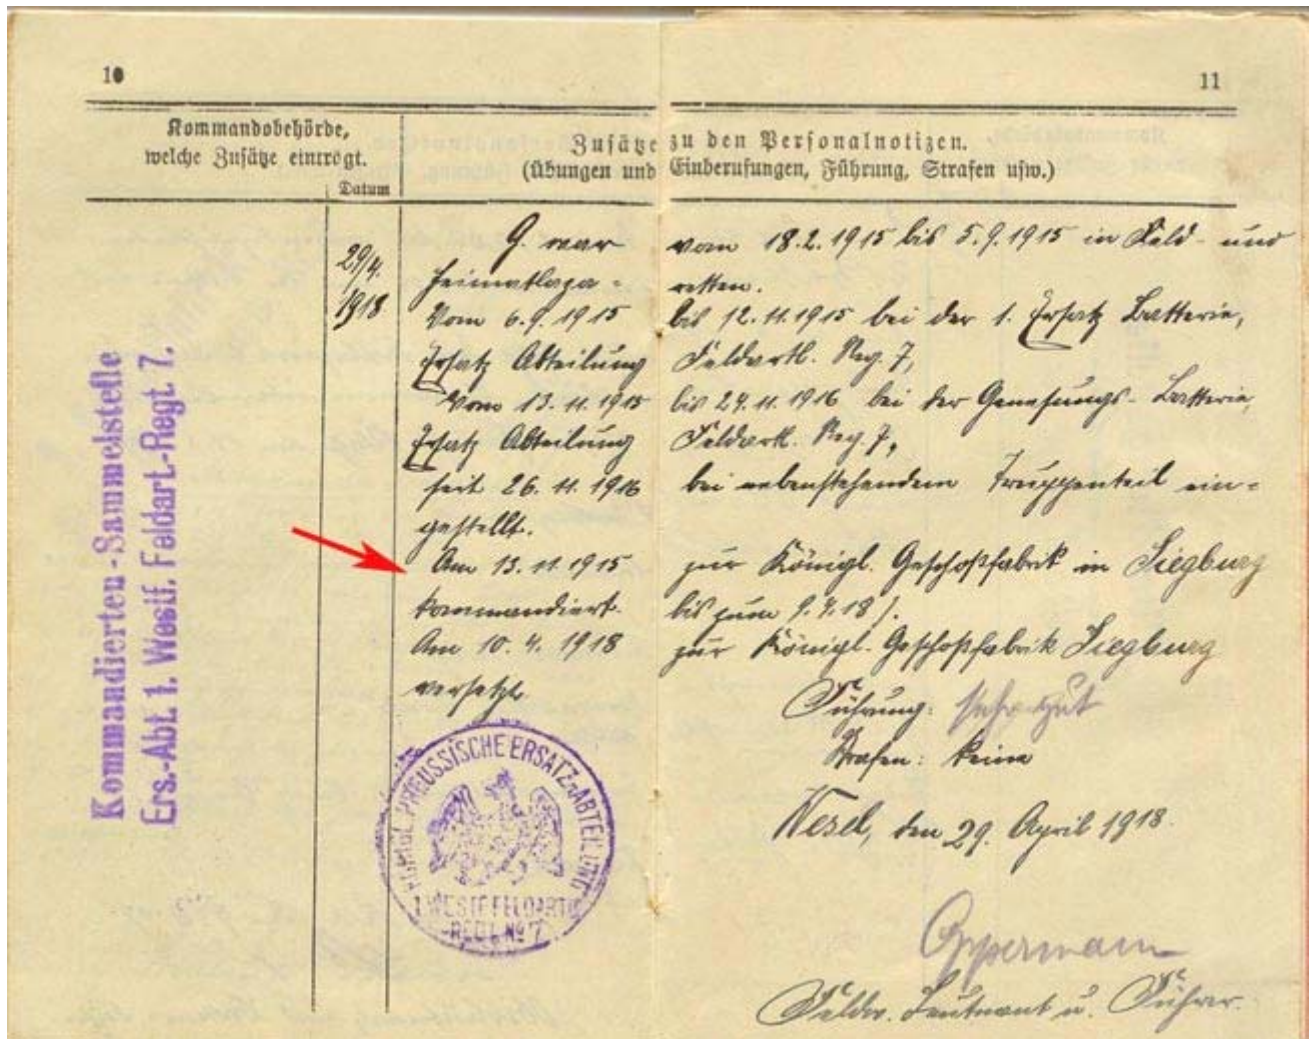 10
11
Kommandobehörde,
welche Zusätze einträgt.
Datum
Zusätze zu den Personalnotizen.
(Übungen und Einberufungen, Führung, Strafen usw.)
Kommandierten-Sammelstelle
Ers.-Abt. 1. Westf. Feldart.-Regt 7.
29/4.
1918
G. war vom 18.2.1915 bis 5.9.1915 in Feld- und
Heimatlaza- retten.
Vom 6.9.1915 bis 12.11.1915 bei der 1. Ersatz Batterie,
Ersatz Abteilung Feldartl. Reg. 7,
Vom 13.11.1915 bis 24.11.1916 bei der Genesungs-Batterie,
Ersatz Abteilung Feldartl. Reg. 7,
seit 26.11.1916 bei nebenstehendem Truppenteil ein-
gestellt.
Am 13.11.1915 zur Königl. Geschoßfabrik in Siegburg
kommandiert. bis zum 9.4.18).
Am 10.4.1918 zur Königl. Geschoßfabrik Siegburg
versetzt.
Führung: sehr gut
Strafen: keine
Wesel, den 29. April 1918.
Oppermann
Feldw. Leutnant u. Führer.
KÖNIGL. PREUSSISCHE ERSATZ-ABTEILUNG
1. WESTF. FELDARTL.
REGT. No 7